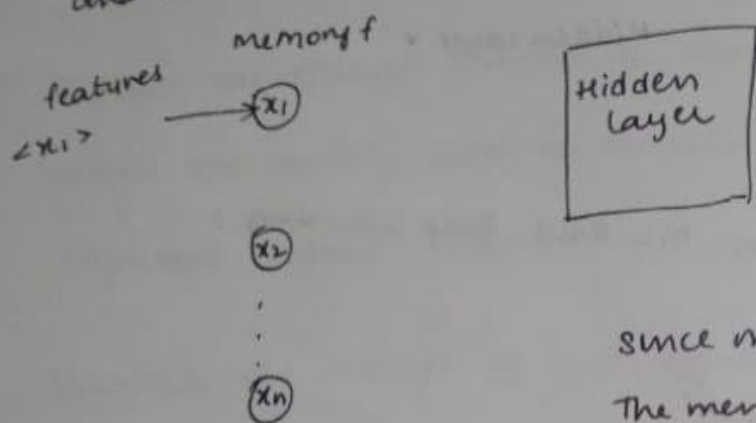 memory f
features
<x1>
x1
Hidden
layer
x2
xn
since
The